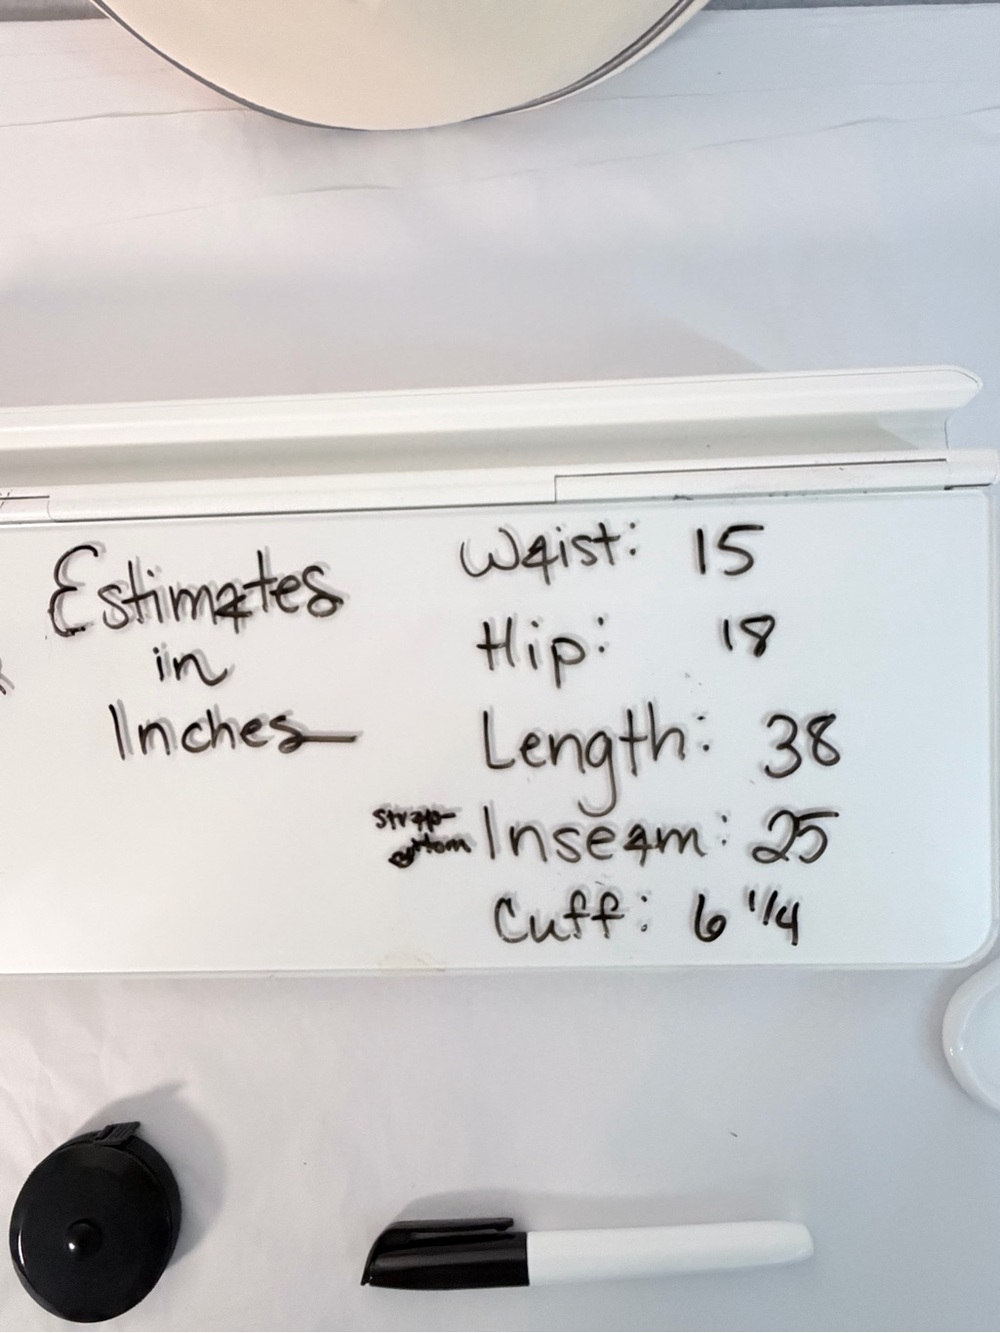 Estimates
in
Inches
Waist: 15
Hip: 18
Length: 38
Inseam: 25
strap-
Cuff: 6 1/4